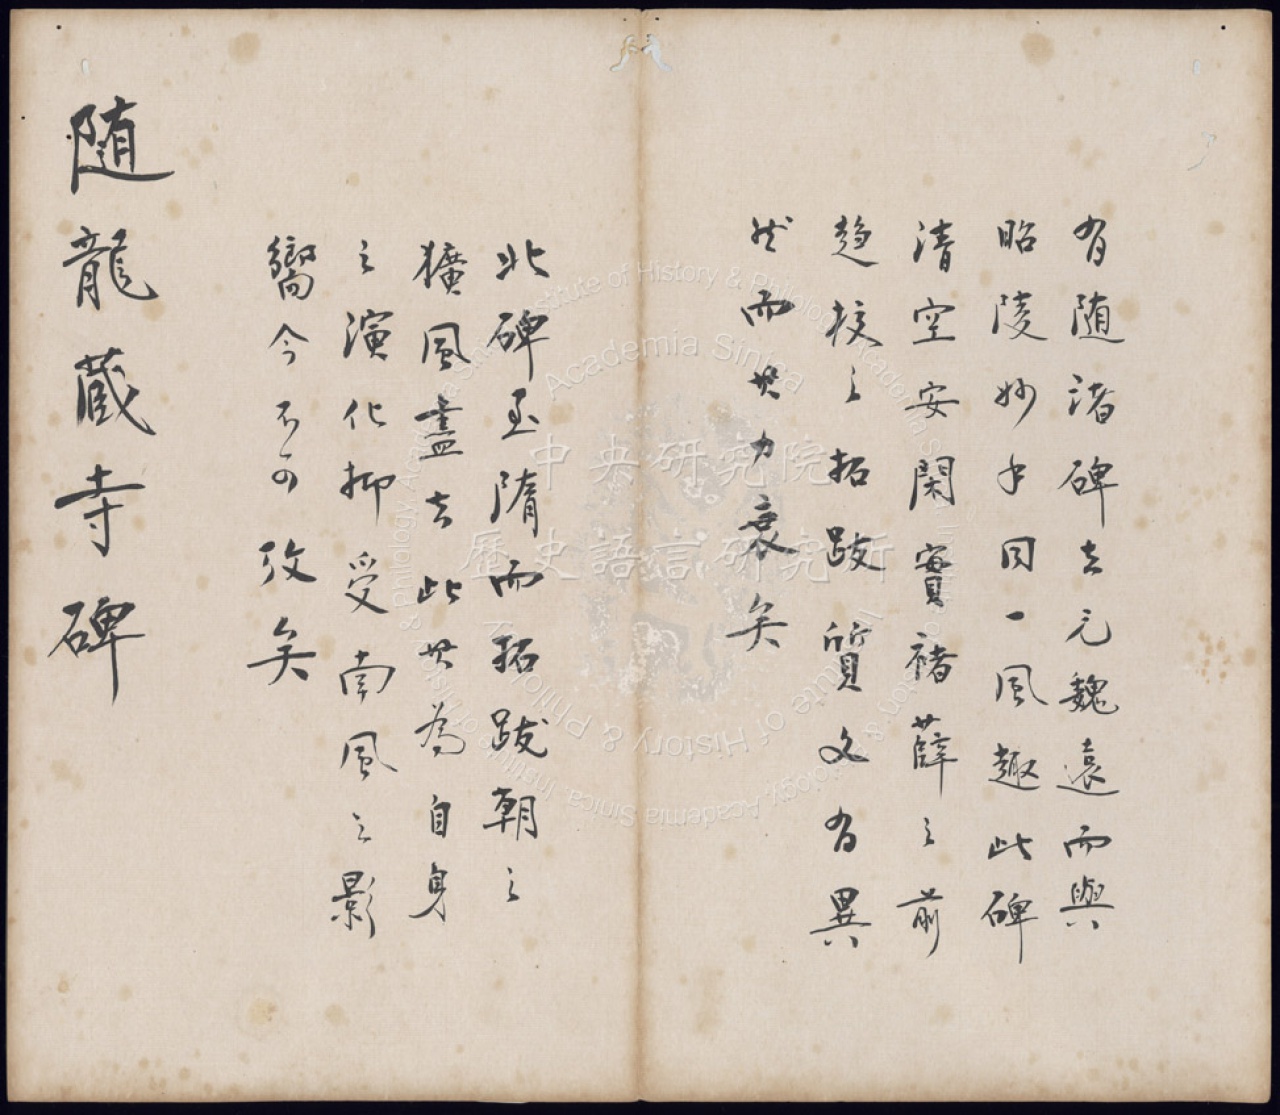 有随諸碑去元魏遠而與
昭陵妙手同一風趣此碑
清空安閑實褚薛之前
趋校之拓跋質文有異
然而其力衰矣
北碑至隋而拓跋朝之
獷風盡去此其為自身
之演化抑受南風之影
嚮今不可攷矣
随龍蔵寺碑
中央研究院
歷史語言研究所
Institute of History & Philology, Academia Sinica